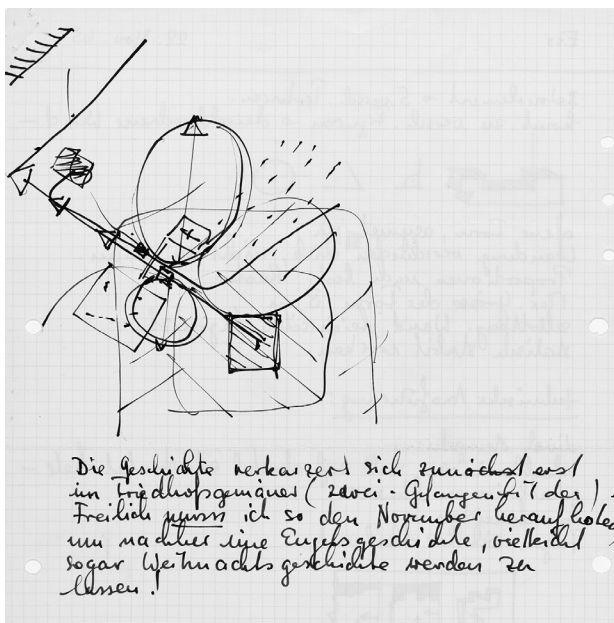 Die Geschichte verkarzert sich zunächst erst
im Friedhofsgemäuer (zwei - Gefangen der)
Freilich muss ich so den November heraufholen
um nachher eine Engelsgeschichte, vielleicht
sogar Weihnachtsgeschichte werden zu
lassen!